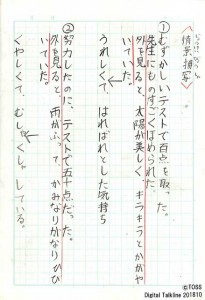 〈情景描写〉
じょうけいびょうしゃ
①むずかしいテストで百点を取った。
先生にものすごくほめられた
外を見ると、太陽が美しく、キラキラとかがや
いていた。
うれしくて、はればれとした気持ち
②努力したのに、テストで五十点だった。
外を見ると、雨がふって、かみなりがなりひび
いていた。
くやしくて、むしゃくしゃしている。
©TOSS
Digital Talkline 201810